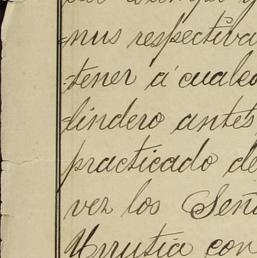 -nus respectiva
-tener á cualqu
-lindero antes
practicado de
vez los Seño
Urrutia con